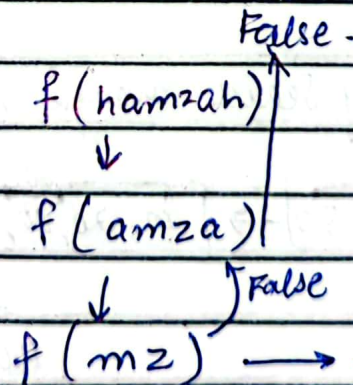 False
f (hamzah)
↓
f (amza)
↓ False
f (mz) →